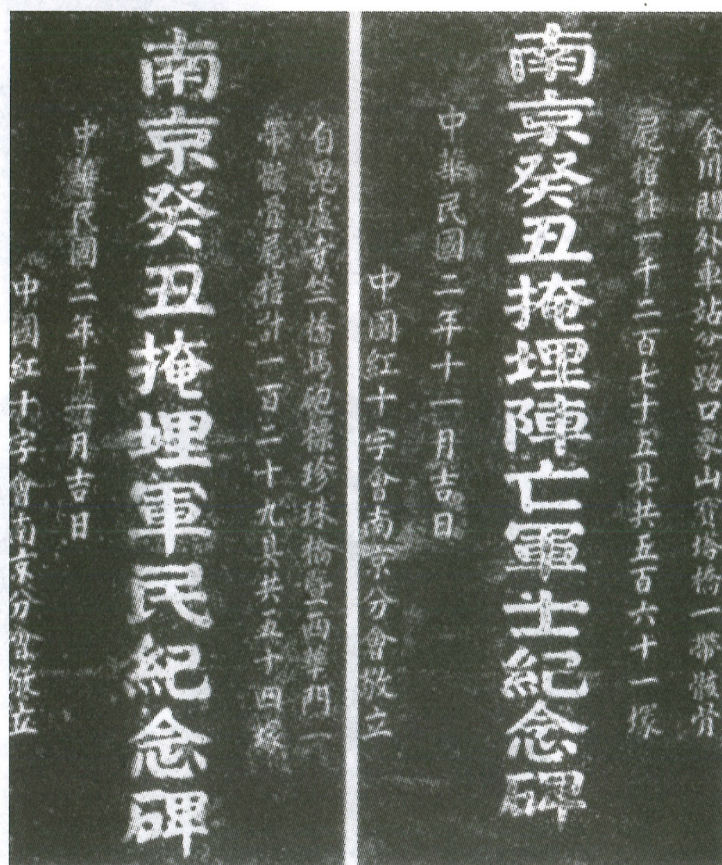 金川門外車站分路口象山寶塔橋一帶骸骨
屍棺計一千二百七十五具共五百六十一塚
南京癸丑掩埋陣亡軍士紀念碑
中華民國二年十一月吉日
中國紅十字會南京分會敬立
自毘盧寺竺橋馬砲標珍珠橋暨西華門一
帶骸骨屍棺計一百二十九具共五十四塚
南京癸丑掩埋軍民紀念碑
中華民國二年十一月吉日
中國紅十字會南京分會敬立